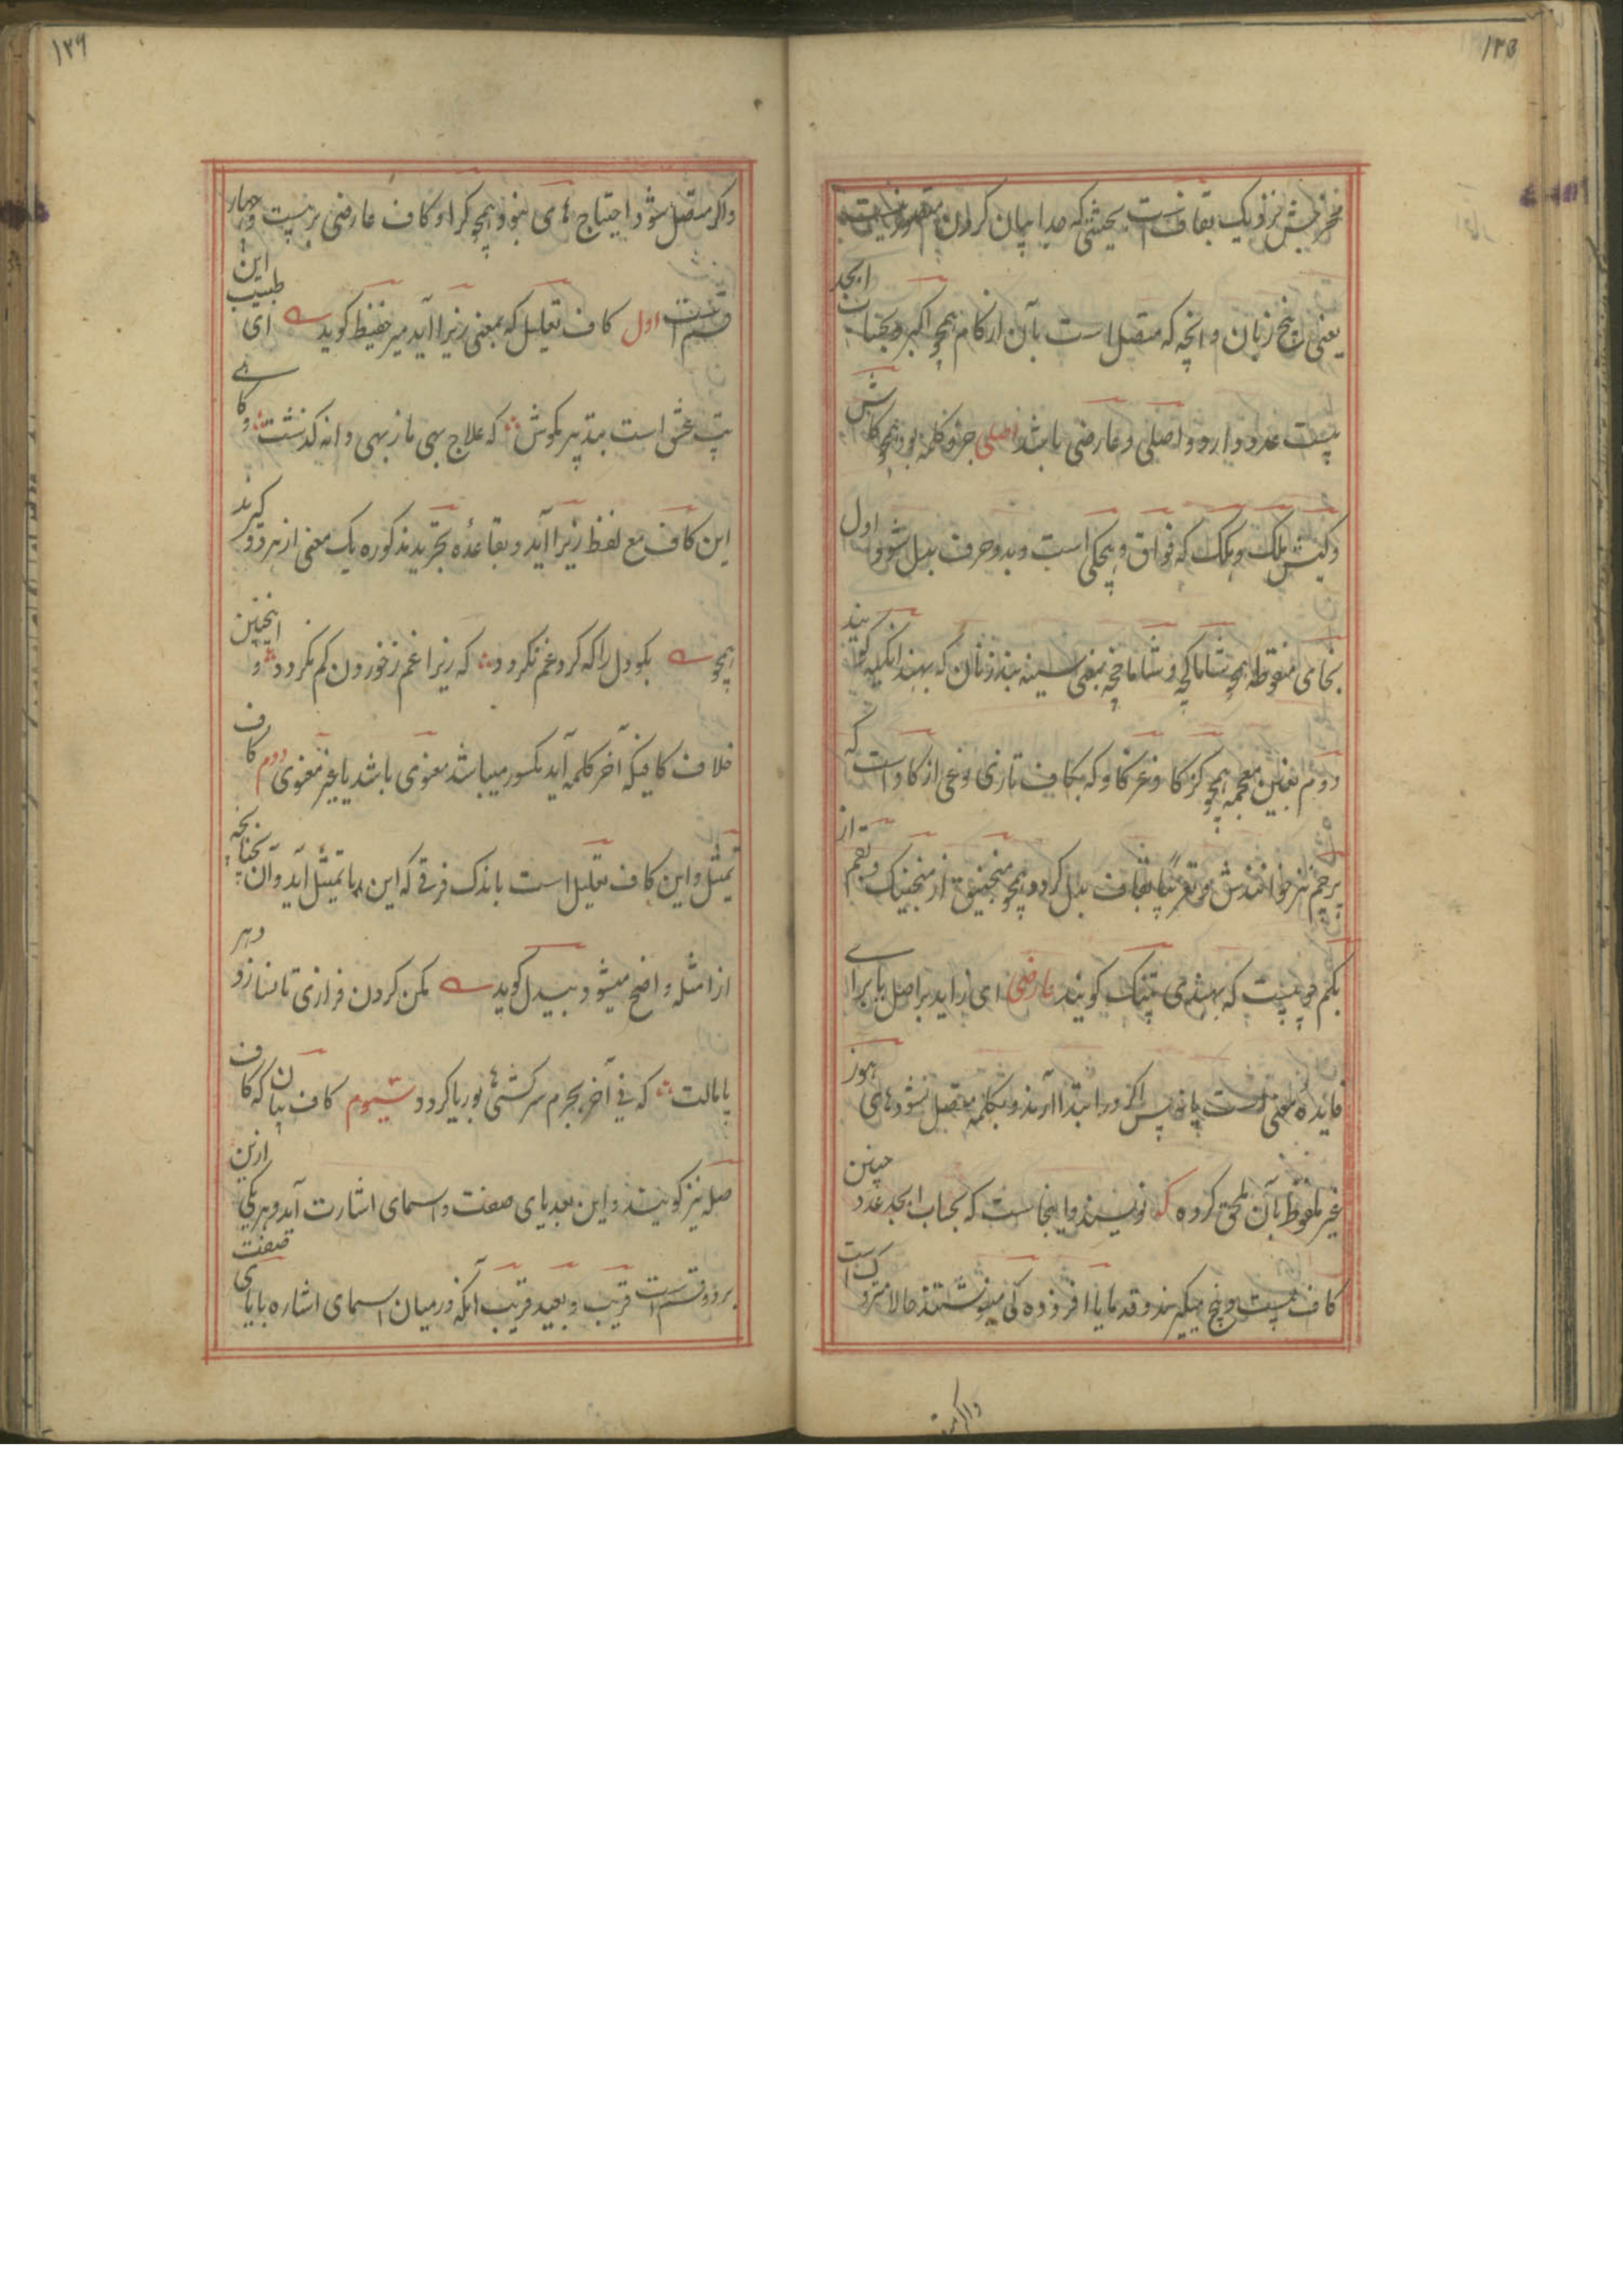 ۱۳۵
مخرجش نزدیک بقاف است بحیثیتی که جدا بیان کردن
یعنی بیخ زبان و آنچه که متصل است بآن از کام همچو اکبر و بحساب ابجد
بیست عدد دارد و اصلی و عارضی باشد اصلی جزو کلمه بود همچو کاش
و کیش یلک و بکک که فواق و هچکی است و بدو حرف بدل شود اول
بخای منقوطه همچو شاماکچه و شاماخچه بمعنی سینه بند زنان که بهند انگیه گویند
دوم بغین معجمه همچو کژکاو غژکاو که بکاف تازی نوعی از کاو است که
پرچم نیز خوانندش و تعریبًا بقاف بدل کردد همچو منجنیق از منجنیک و بقم از
بکم چوبیست که بهندی پتنک کویند عارضی ای زاید بر اصل یا برای
فایدهٔ معنی است یا نه پس اکر در ابتدا آرند و بکلمه متصل نشود های هوز
غیر ملفوظ بآن ملحق کرده که نویسند و اینجاست که بحساب ابجد عدد چنین
کاف بیست و پنج میگیرند و قدما یا افزوده کی مینوشتند حالا متروک است
واکر متصل
۱۳۶
واکر متصل شود احتیاج های نبود همچو کراو کاف عارضی بر بیست و چهار
قسم است اول کاف تعلیل که بمعنی زیرا آید میر حفیظ کوید ای این طبیب
تپ عشق است بتدبیر مکوش که علاج بهی ما ز بهی دانه کذشت و کاهی
این کاف مع لفظ زیرا آید و بقاعدهٔ تجرید مذکوره یک معنی از هر دو کیرند
همچو بکو دل را که کرد غم نکردد که زیرا غم ز خوردن کم نکردد و اینچنین
خلاف کافیکه آخر کلمه آید مکسور میباشد معنوی باشد یا غیر معنوی دوم کاف
تمثیل و این کاف تعلیل است باندک فرقی که این با تمثیل آید و آن بی چنانچه
از امثله واضح میشود بیدل کوید مکن کردن فرازی تا نسازد دهر
پامالت که نی آخر بجرم سرکشی ها بوریا کردد سیوم کاف بیان که کاف
صله نیز کویند و این بعد یای صفت و اسمای اشارت آید و هر یکی ازین
بر دو قسم است قریب و بعید قریب آنکه در میان اسمای اشاره با یای صفت